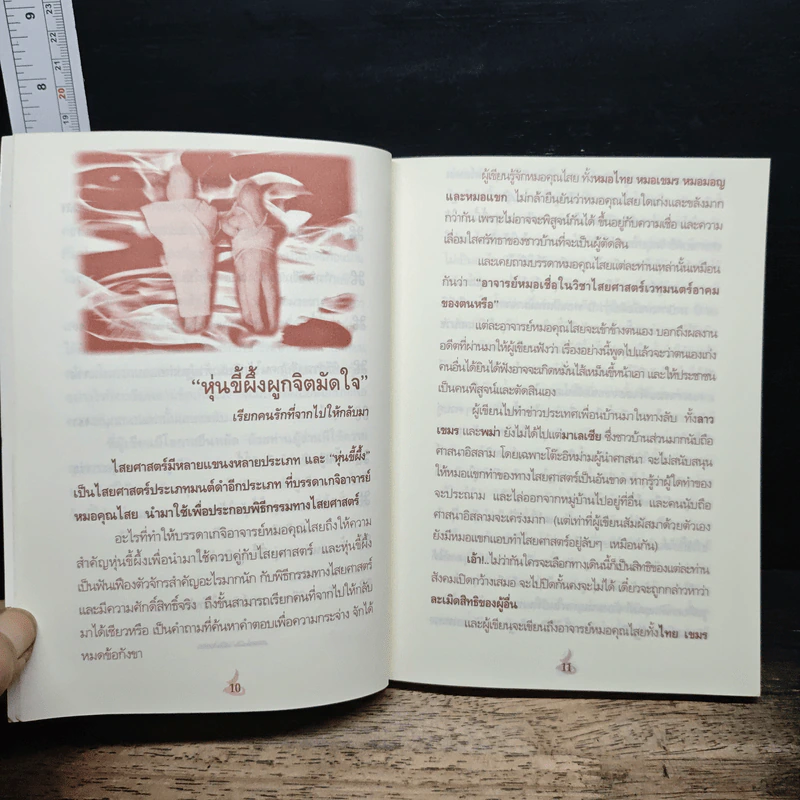 9
8
23
22
21
20
19
“หุ่นขี้ผึ้งผูกจิตมัดใจ”
เรียกคนรักที่จากไปให้กลับมา
ไสยศาสตร์มีหลายแขนงหลายประเภท และ “หุ่นขี้ผึ้ง”
เป็นไสยศาสตร์ประเภทมนต์ดำอีกประเภท ที่บรรดาเกจิอาจารย์
หมอคุณไสย นำมาใช้เพื่อประกอบพิธีกรรมทางไสยศาสตร์
อะไรที่ทำให้บรรดาเกจิอาจารย์หมอคุณไสยถึงให้ความ
สำคัญหุ่นขี้ผึ้งเพื่อนำมาใช้ควบคู่กับไสยศาสตร์ และหุ่นขี้ผึ้ง
เป็นฟันเฟืองตัวจักรสำคัญอะไรมากนัก กับพิธีกรรมทางไสยศาสตร์
และมีความศักดิ์สิทธิ์จริง ถึงขั้นสามารถเรียกคนที่จากไปให้กลับ
มาได้เชียวหรือ เป็นคำถามที่ค้นหาคำตอบเพื่อความกระจ่าง จักได้
หมดข้อกังขา
10
ผู้เขียนรู้จักหมอคุณไสย ทั้งหมอไทย หมอเขมร หมอมอญ
และหมอแขก ไม่กล้ายืนยันว่าหมอคุณไสยใดเก่งและขลังมาก
กว่ากัน เพราะไม่อาจจะพิสูจน์กันได้ ขึ้นอยู่กับความเชื่อ และความ
เลื่อมใสศรัทธาของชาวบ้านที่จะเป็นผู้ตัดสิน
และเคยถามบรรดาหมอคุณไสยแต่ละท่านเหล่านั้นเหมือน
กันว่า “อาจารย์หมอเชื่อในวิชาไสยศาสตร์เวทมนตร์อาคม
ของตนหรือ”
แต่ละอาจารย์หมอคุณไสยจะเข้าข้างตนเอง บอกถึงผลงาน
อดีตที่ผ่านมาให้ผู้เขียนฟังว่า เรื่องอย่างนี้พูดไปแล้วจะว่าตนเองเก่ง
คนอื่นได้ยินได้ฟังอาจจะเกิดหมั่นไส้เหม็นขี้หน้าเอา และให้ประชาชน
เป็นคนพิสูจน์และตัดสินเอง
ผู้เขียนไปทำข่าวประเทศเพื่อนบ้านมาในทางลับ ทั้งลาว
เขมร และพม่า ยังไม่ได้ไปแต่มาเลเซีย ซึ่งชาวบ้านส่วนมากนับถือ
ศาสนาอิสลาม โดยเฉพาะโต๊ะอิหม่ามผู้นำศาสนา จะไม่สนับสนุน
ให้หมอแขกทำของทางไสยศาสตร์เป็นอันขาด หากรู้ว่าผู้ใดทำของ
จะประณาม และไล่ออกจากหมู่บ้านไปอยู่ที่อื่น และคนนับถือ
ศาสนาอิสลามจะเคร่งมาก (แต่เท่าที่ผู้เขียนสัมผัสมาด้วยตัวเอง
ยังมีหมอแขกแอบทำไสยศาสตร์อยู่ลับๆ เหมือนกัน)
เอ้า!..ไม่ว่ากันใครจะเลือกทางเดินนี้ก็เป็นสิทธิของแต่ละท่าน
สังคมเปิดกว้างเสมอ จะไปปิดกั้นคงจะไม่ได้ เดี๋ยวจะถูกกล่าวหาว่า
ละเมิดสิทธิของผู้อื่น
และผู้เขียนจะเขียนถึงอาจารย์หมอคุณไสยทั้งไทย เขมร
11